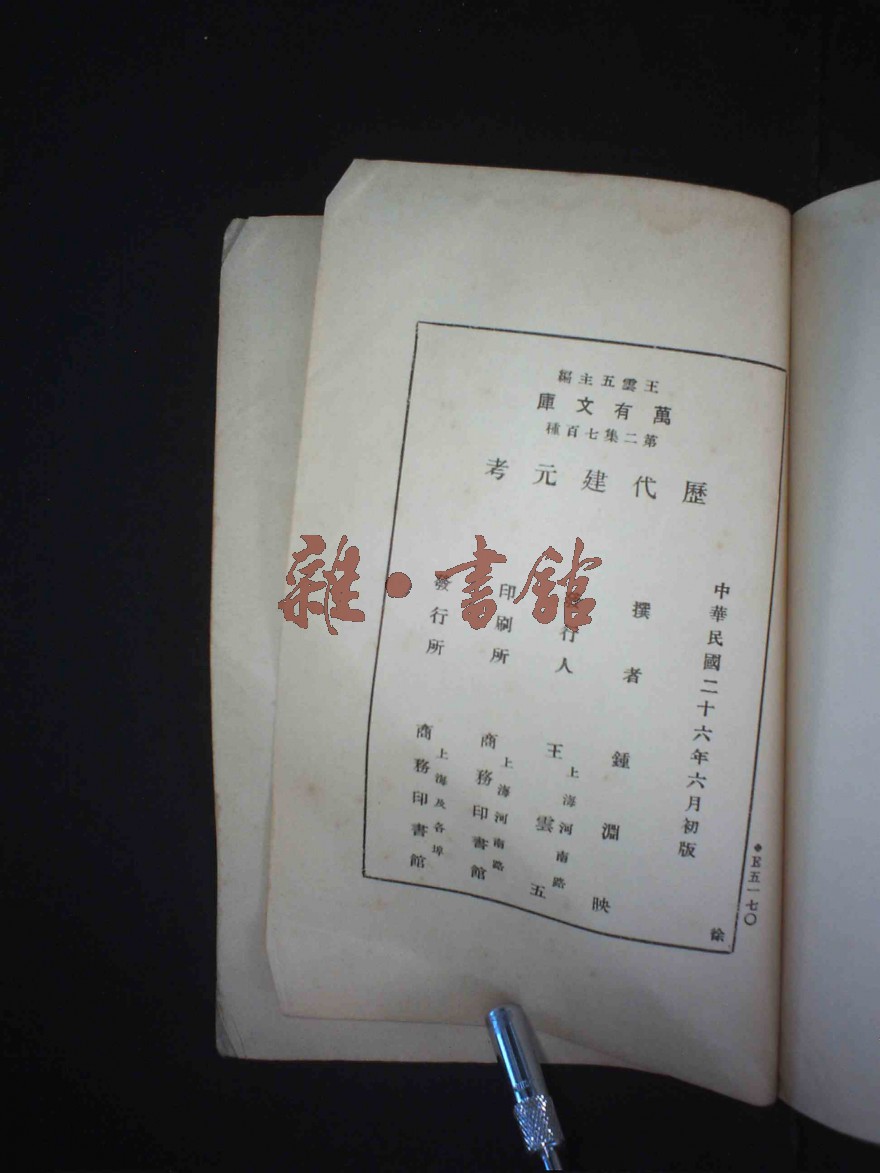 王雲五主編
萬有文庫
第二集七百種
歷代建元考
中華民國二十六年六月初版
◆E五一七〇
撰者 鍾淵映
發行人 王雲五
上海河南路
印刷所 商務印書館
上海河南路
發行所 商務印書館
上海及各埠
徐
雜·書館